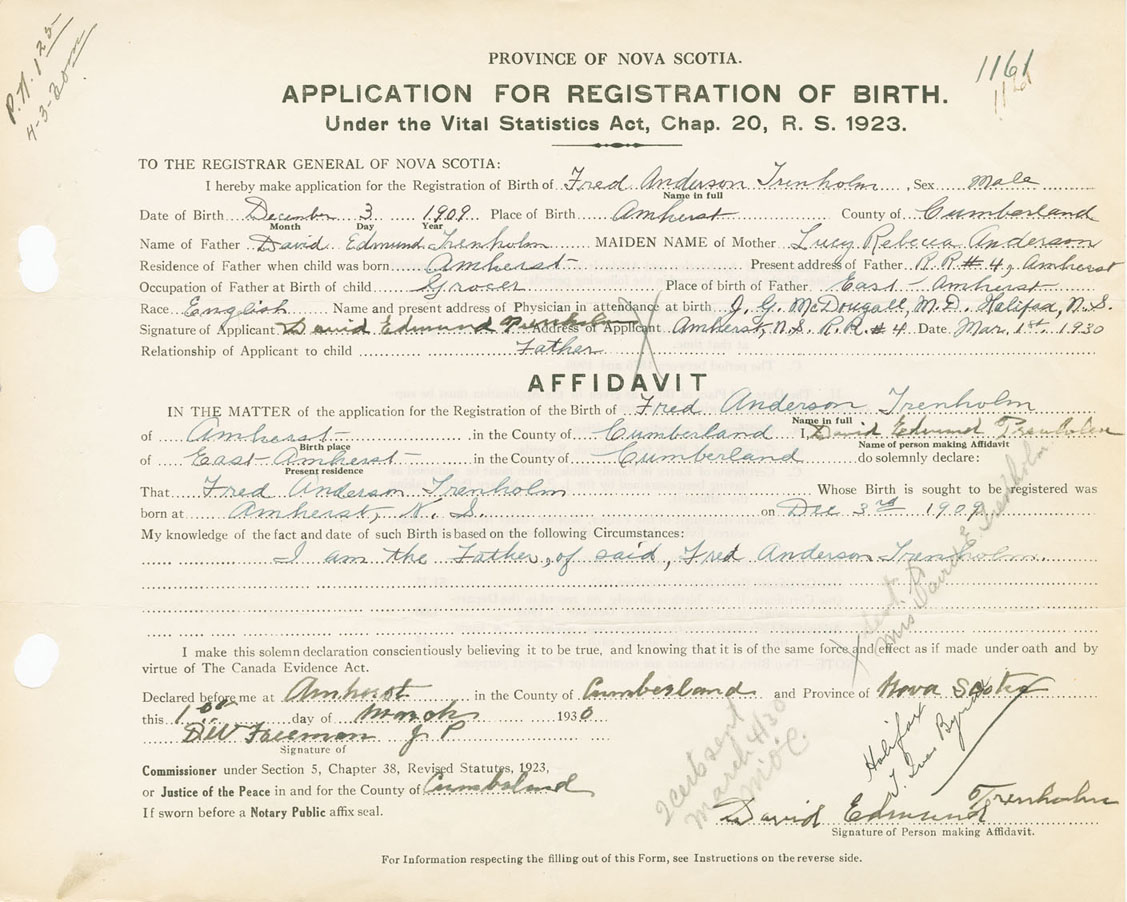 P.N. 1 25
4-3-30
1161
1161
PROVINCE OF NOVA SCOTIA.
APPLICATION FOR REGISTRATION OF BIRTH.
Under the Vital Statistics Act, Chap. 20, R. S. 1923.
TO THE REGISTRAR GENERAL OF NOVA SCOTIA:
I hereby make application for the Registration of Birth of Fred Anderson Trenholm, Sex Male
Name in full
Date of Birth December 3 1909 Place of Birth Amherst County of Cumberland
Month Day Year
Name of Father David Edmund Trenholm MAIDEN NAME of Mother Lucy Rebecca Anderson
Residence of Father when child was born Amherst Present address of Father R.R # 4, Amherst
Occupation of Father at Birth of child Grocer Place of birth of Father East Amherst
Race English Name and present address of Physician in attendance at birth J. G. McDougall, M.D. Halifax, N.S.
Signature of Applicant David Edmund Trenholm Address of Applicant Amherst, N.S. R.R. # 4 Date Mar. 1st. 1930
Relationship of Applicant to child Father
AFFIDAVIT
IN THE MATTER of the application for the Registration of the Birth of Fred Anderson Trenholm
Name in full
of Amherst in the County of Cumberland I, David Edmund Trenholm
Birth place Name of person making Affidavit
of East Amherst in the County of Cumberland do solemnly declare:
Present residence
That Fred Anderson Trenholm Whose Birth is sought to be registered was
born at Amherst, N. S. on Dec 3rd 1909
My knowledge of the fact and date of such Birth is based on the following Circumstances:
I am the Father, of said, Fred Anderson Trenholm.
I make this solemn declaration conscientiously believing it to be true, and knowing that it is of the same force and effect as if made under oath and by
virtue of The Canada Evidence Act.
Declared before me at Amherst in the County of Cumberland and Province of Nova Scotia
this 1st day of March 1930
Freeman J P
Signature of
Commissioner under Section 5, Chapter 38, Revised Statutes, 1923,
or Justice of the Peace in and for the County of Cumberland
If sworn before a Notary Public affix seal.
sent to
Mrs David E. Trenholm
2 certs sent
March 4/30
Halifax
David Edmund Trenholm
Signature of Person making Affidavit.
For Information respecting the filling out of this Form, see Instructions on the reverse side.